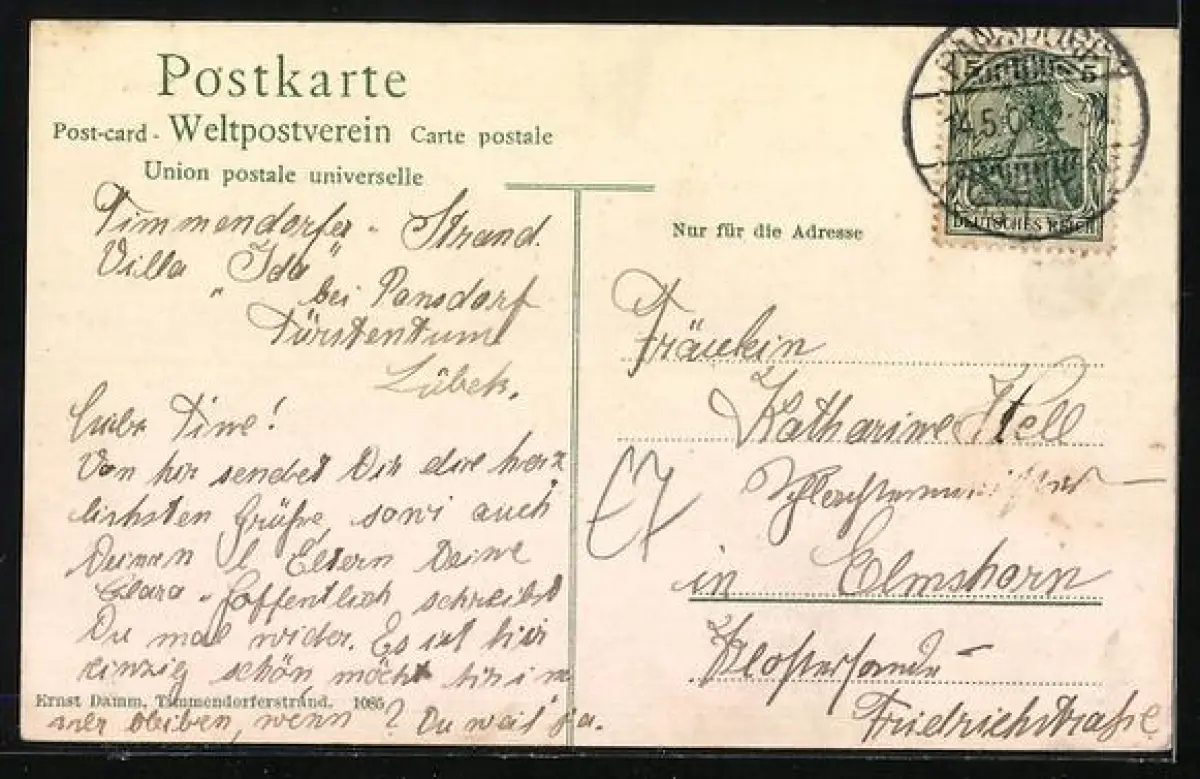 Postkarte
Post-card - Weltpostverein Carte postale
Union postale universelle
Timmendorfer - Strand.
Villa "Ida"
bei Pansdorf
Fürstentum
Lübek.
Liebe Tine!
Von hir sendet Dir die herz
lichsten Grüße, sowi auch
Deinen l Eltern Deine
Clara. Hoffentlich schreibst
Du mal wider. Es ist hir
einzig schön möcht hir
Ernst Damm, Timmendorferstrand. 1085
bleiben, wenn? Du weist ja.
5 5
14.5.0
DEUTSCHES REICH
Nur für die Adresse
Fräulein
Katharine
in Elmshorn
Klostersande -
Friedrichstraße